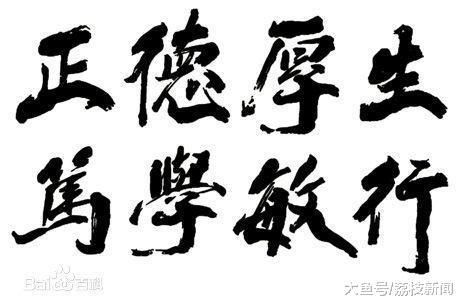 正德厚生
篤學敏行
Bai百科
大鱼号/荔枝新闻